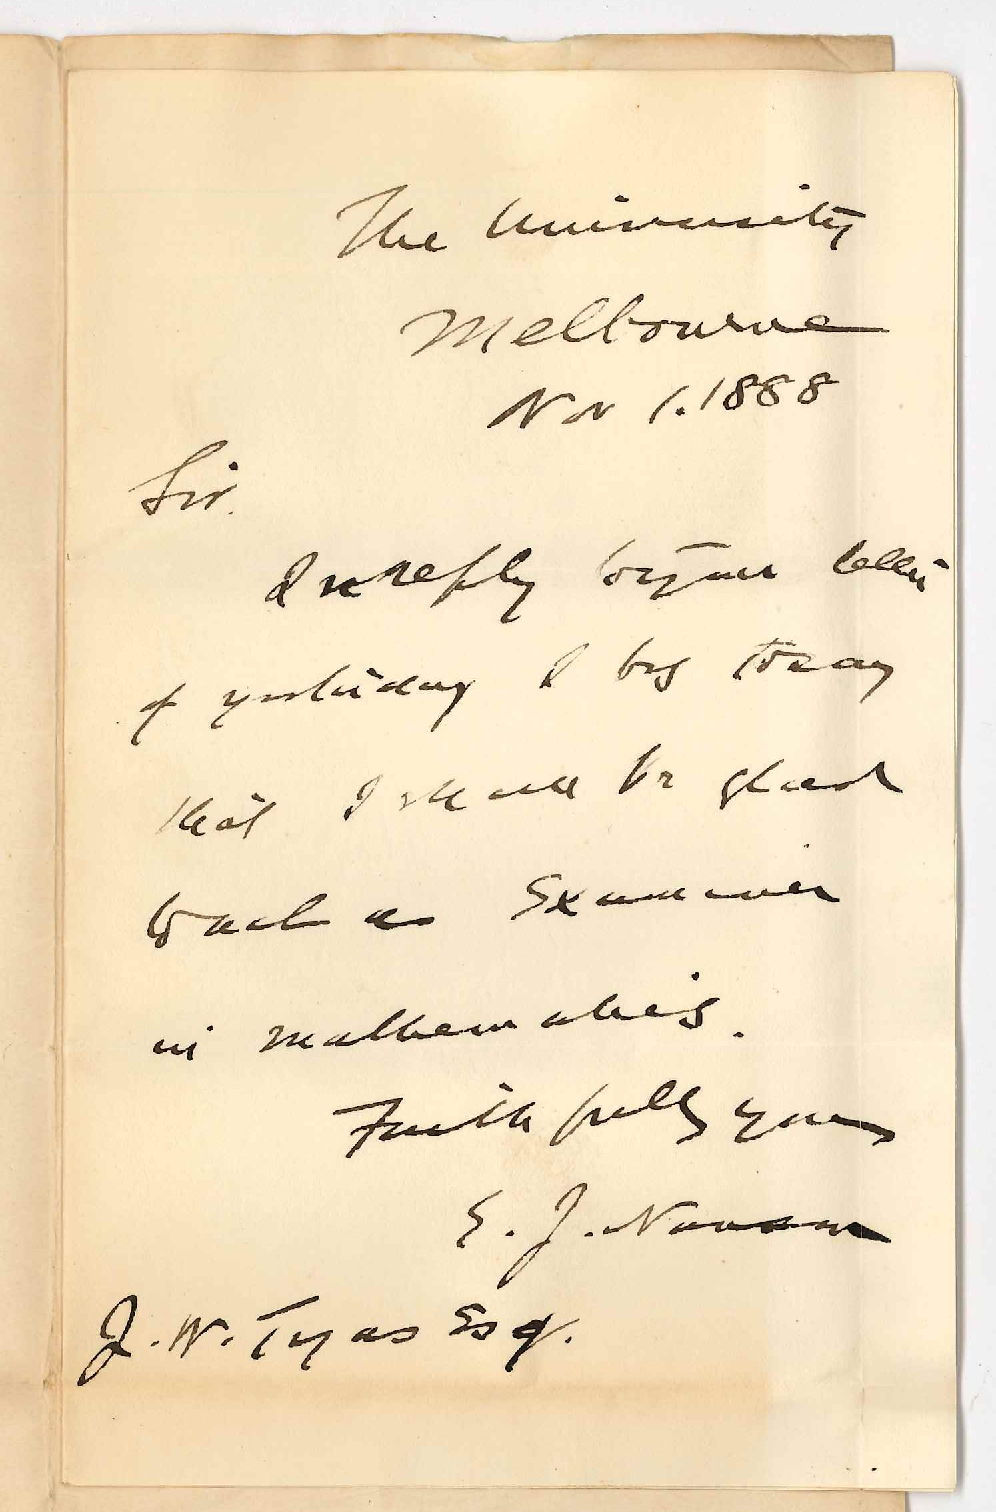 The University
Melbourne
Nov 1. 1888
Sir.
In reply to your letter
of yesterday I beg to say
that I shall be glad
to act as Examiner
in mathematics.
Faithfully yours
E. J. Nanson
J. W. Tyas Esq.